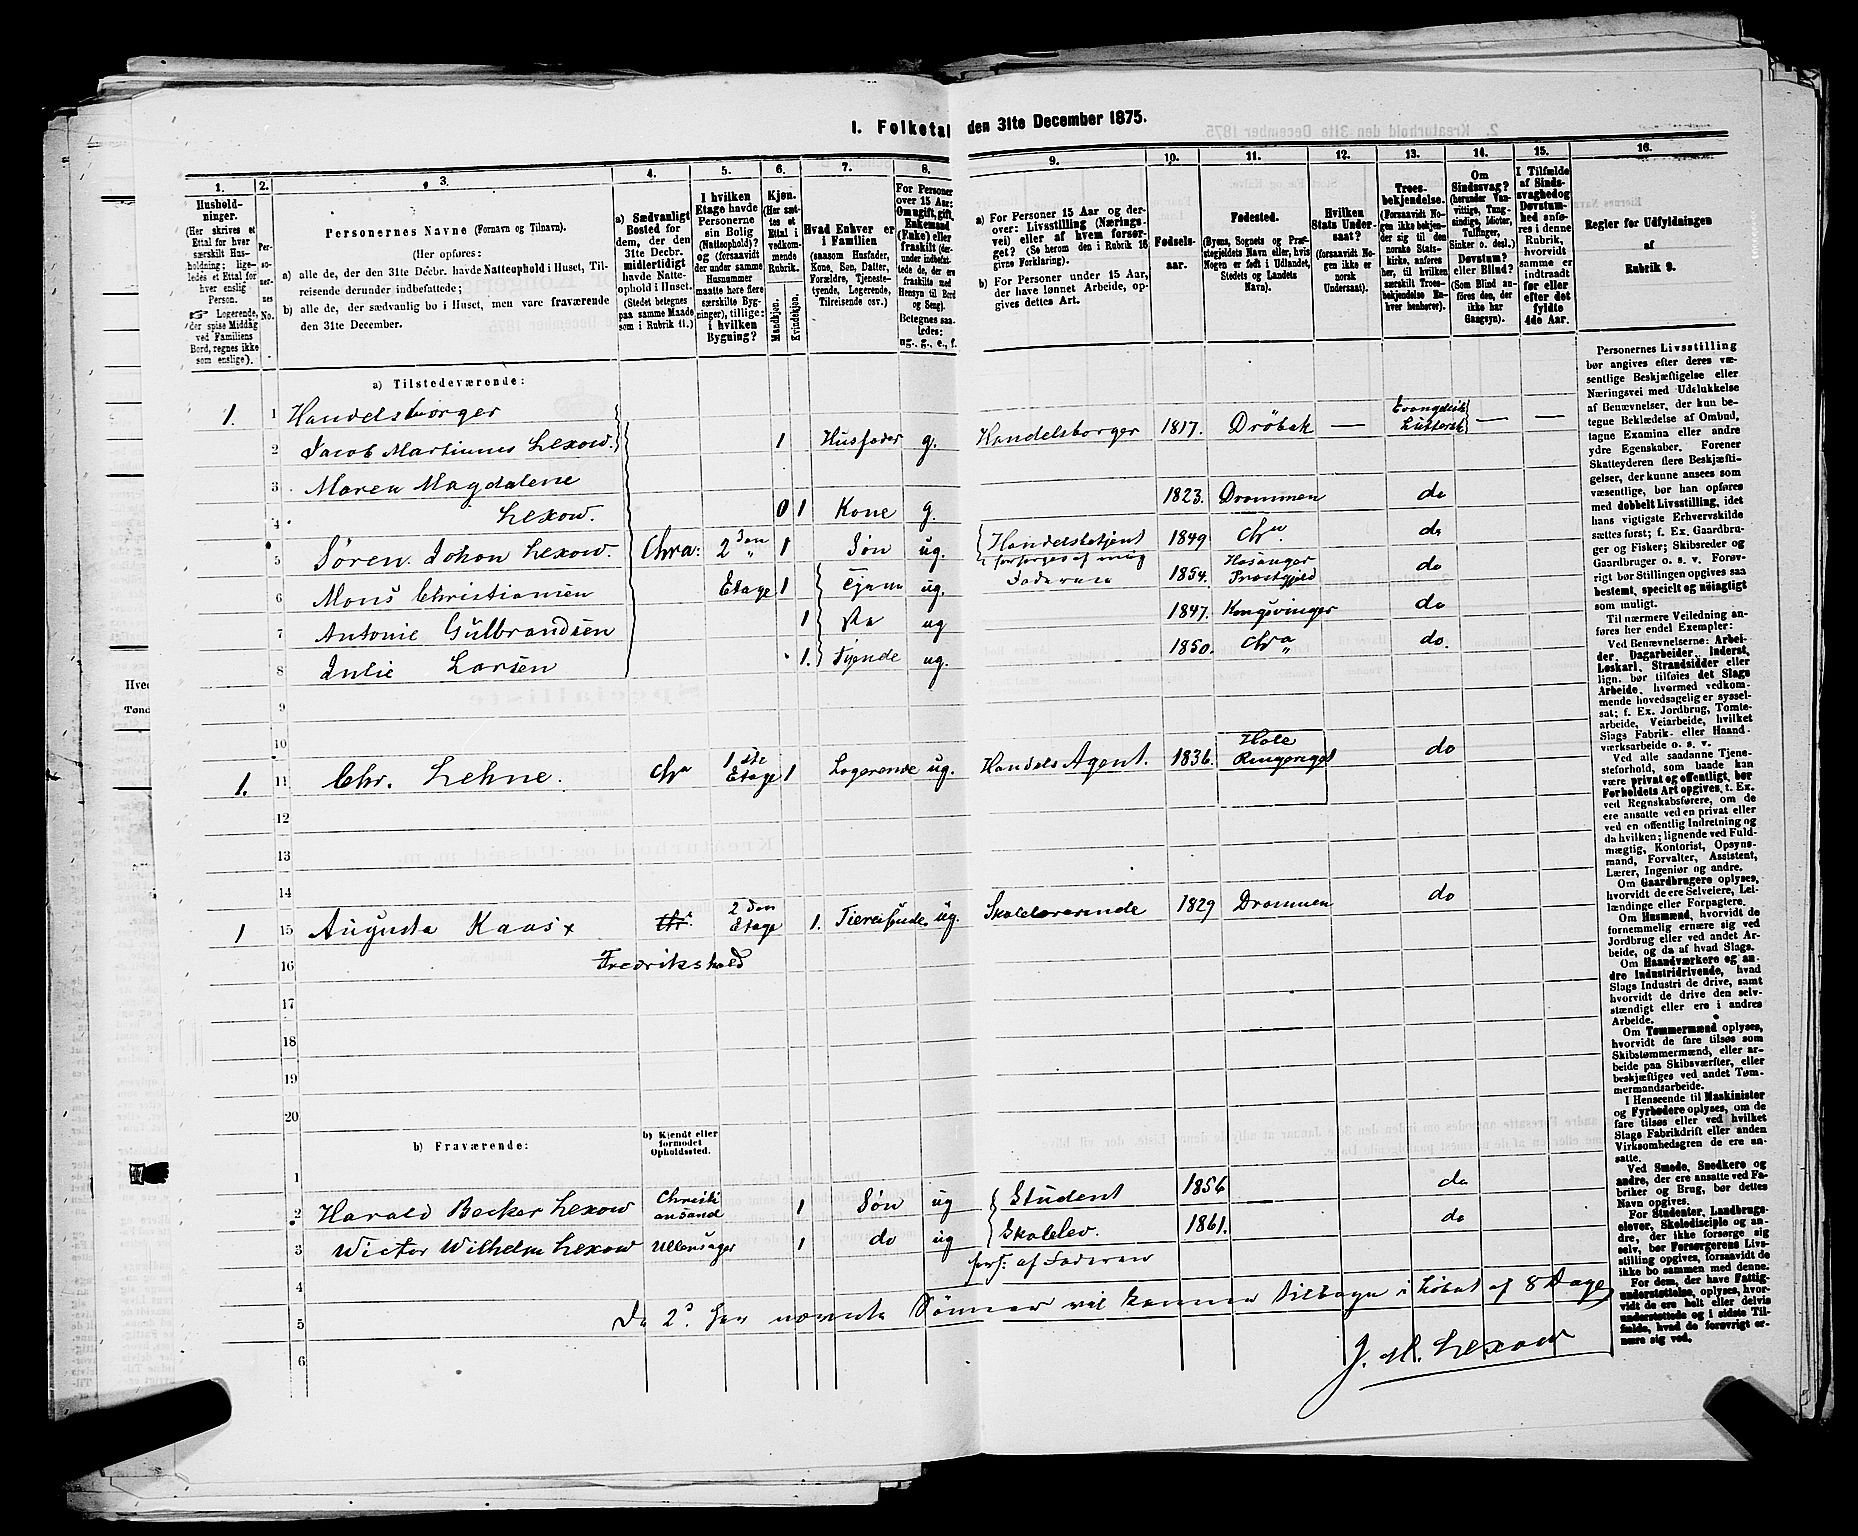 1. Folketal den 31te December 1875.
1. 2. 3. 4. 5. 6. 7. 8. 9. 10. 11. 12. 13. 14. 15. 16.
Hushold-
ninger.
(Her skrives et
Ettal for hver
særskilt Hus-
holdning; lige-
ledes et Ettal for
hver enslig
Person.
☞ Logerende,
der spise Middag
ved Familiens
Bord, regnes ikke
som enslige).
Per-
so-
ner-
nes
No.
Personernes Navne (Fornavn og Tilnavn).
(Her opføres:
a) alle de, der den 31te Decbr. havde Natteophold i Huset, Til-
reisende derunder indbefattede;
b) alle de, der sædvanlig bo i Huset, men vare fraværende
den 31te December.
a) Sædvanligt
Bosted for
dem, der den
31te Decbr.
midlertidigt
havde Natte-
ophold i Huset.
(Stedet betegnes
paa samme Maade
som i Rubrik 11.)
I hvilken
Etage havde
Personerne
sin Bolig
(Natteophold)?
og (forsaavidt
der under samme
Husnummer
maatte høre flere
særskilte Byg-
ninger), tillige:
i hvilken
Bygning?
Kjøn.
(Her sæt-
tes et
Ettal i
vedkom-
mende
Rubrik.
Mandkjøn.
Kvindekjøn.
Hvad Enhver er
i Familien
(saasom Husfader,
Kone, Søn, Datter,
Forældre, Tjeneste-
tyende, Logerende,
Tilreisende osv.)
For Personer
over 15 Aar:
Om ugift, gift,
Enkemand
(Enke) eller
fraskilt (der-
under indbefat-
tede de, der ere
fraskilte med
Hensyn til Bord
og Seng).
Betegnes saa-
ledes:
ug., g., e., f.
a) For Personer 15 Aar og der-
over: Livsstilling (Nærings-
vei) eller af hvem forsør-
get? (Se herom den i Rubrik 16
givne Forklaring).
b) For Personer under 15 Aar,
der have lønnet Arbeide, op-
gives dettes Art.
Fødsels-
aar.
Fødested.
(Byens, Sognets og Præ-
stegjeldets Navn eller, hvis
Nogen er født i Udlandet,
Stedets og Landets
Navn).
Hvilken
Stats Under-
saat?
(forsaavidt No-
gen ikke er
norsk
Undersaat).
Troes-
bekjendelse.
(Forsaavidt No-
gen ikke bekjen-
der sig til den
norske Stats-
kirke, anføres
her, til hvilken
særskilt Troes-
bekjendelse En-
hver henhører).
Om
Sindssvag?
(herunder Van-
vittige, Tung-
sindige, Idioter,
Tullinger,
Sinker o. desl.)
Døvstum?
eller Blind?
(Som Blind an-
føres den, der
ikke har
Gangsyn).
I Tilfælde
af Sinds-
svaghed og
Døvstum-
hed anfø-
res i denne
Rubrik,
hvorvidt
samme er
indtraadt
før eller
efter det
fyldte
4de Aar.
Regler for Udfyldningen
af
Rubrik 9.
a) Tilstedeværende:
1. 1 Handelsborger
2 Jacob Martinus Lexow. 1 Husfader g. Handelsborger 1817. Dröbak — Evangelisk Luttersk — —
3 Maren Magdalene
4 Lexow. 0 1 Kone g. 1823. Drammen do
5 Søren Johan Lexow. Chra: 2den 1 Søn ug. Handelsbetjent 1849 Chra. do
forsørges af mig Faderen
6 Mons Christiansen Etage 1 Tjener ug. 1854. Præstgjeld do
7 Antonie Gulbrandsen 1 Pa ug 1847. Kongsvinger do
8 Julie Larsen 1. Tyende ug. 1850. Chra do.
9
10
1. 11 Chr. Lehne. Chra 1ste Etage 1 Logerende ug. Handels Agent. 1836. Hole Ringeriget do
12
13
14
1 15 Augusta Kaas x Chr. 2den Etage 1. Tilreisende ug. Skolelærerinde 1829 Drammen do
16 Fredrikshald
17
18
19
20
b) Fraværende: b) Kjendt eller
formodet
Opholdssted.
1
2 Harald Becker Lexow Christiansand 1 Søn ug Student 1856 do
3 Wictor Wilhelm Lexow Ullensager 1 do ug Skoleelev. 1861. do
4 fors: af Faderen
5 De 2de her nævnte Sönner vil komme tilbage i Löbet af 8 Dage
6 J. M. Lexow
Personernes Livsstilling
bør angives efter deres væ-
sentlige Beskjæftigelse eller
Næringsvei med Udelukkelse
af Benævnelser, der kun be-
tegne Beklædelse af Ombud,
tagne Examina eller andre
ydre Egenskaber. Forener
Skatteyderen flere Beskjæfti-
gelser, der kunne ansees som
væsentlige, bør han opføres
med dobbelt Livsstilling, idet
hans vigtigste Erhvervskilde
sættes først; f. Ex. Gaardbru-
ger og Fisker; Skibsreder og
Gaardbruger o. s. v. Forøv-
rigt bør Stillingen opgives saa
bestemt, specielt og nøiagtigt
som muligt.
Til nærmere Veiledning an-
føres her endel Exempler:
Ved Benævnelserne: Arbei-
der, Dagarbeider, Inderst,
Løskarl, Strandsidder eller
lign. bør tilføies det Slags
Arbeide, hvormed vedkom-
mende hovedsagelig er syssel-
sat; f. Ex. Jordbrug, Tomte-
arbeide, Veiarbeide, hvilket
Slags Fabrik- eller Haand-
værksarbeide o. s. v.
Ved alle saadanne Tjene-
steforhold, som baade kan
være privat og offentligt, bør
Forholdets Art opgives, t. Ex.
ved Regnskabsførere, om de
ere ansatte ved en privat eller
ved en offentlig Indretning og
da hvilken; lignende ved Fuld-
mægtig, Kontorist, Opsyns-
mand, Forvalter, Assistent,
Lærer, Ingeniør og andre.
Om Gaardbrugere oplyses,
hvorvidt de ere Selveiere, Lei-
lændinge eller Forpagtere.
Om Husmænd, hvorvidt de
fornemmelig ernære sig ved
Jordbrug eller ved andet Ar-
beide, og da af hvad Slags.
Om Haandværkere og an-
dre Industridrivende, hvad
Slags Industri de drive, samt
hvorvidt de drive den selv-
stændigt eller ere i andres
Arbeide.
Om Tømmermænd oplyses,
hvorvidt de fare tilsøs som
Skibstømmermænd, eller ar-
beide paa Skibsværfter, eller
beskjæftiges ved andet Tøm-
mermandsarbeide.
I Henseende til Maskinister
og Fyrbødere oplyses, om de
fare tilsøs eller ved hvilket
Slags Fabrikdrift eller anden
Virksomhedsgren de ere an-
satte.
Ved Smede, Snedkere og
andre, der ere ansatte ved Fa-
briker og Brug, bør dettes
Navn opgives.
For Studenter, Landbrugs-
elever, Skoledisciple og an-
dre, der ikke forsørge sig
selv, bør Forsørgerens Livs-
stilling opgives, forsaavidt de
ikke bo sammen med denne.
For dem, der have Fattig-
understøttelse, oplyses, hvor-
vidt de ere helt eller delvis
understøttede og i sidste Til-
fælde, hvad de forøvrigt er-
nære sig ved.